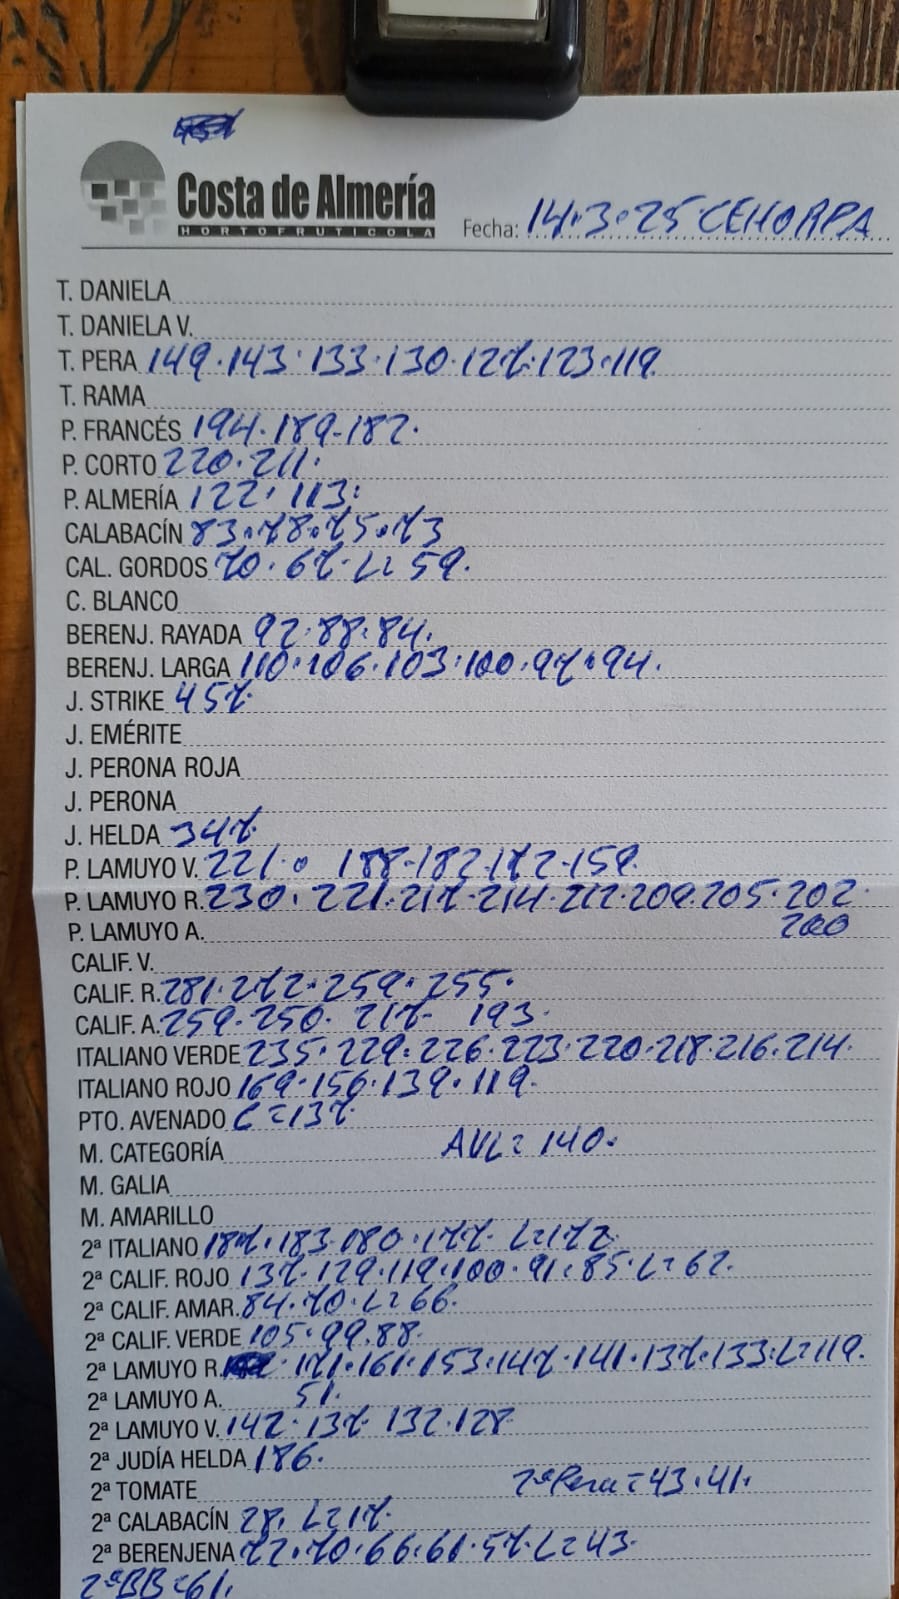 Costa de Almería
HORTOFRUTICOLA
Fecha: 14.3.25 CEHORPA
T. DANIELA
T. DANIELA V.
T. PERA 149.143.133.130.127.123.119
T. RAMA
P. FRANCÉS 194.189-182.
P. CORTO 220.211.
P. ALMERÍA 122. 113.
CALABACÍN 83.78.75.73
CAL. GORDOS 70.67. L=59.
C. BLANCO
BERENJ. RAYADA 92.88.84.
BERENJ. LARGA 110.106.103.100.97.94.
J. STRIKE 457.
J. EMÉRITE
J. PERONA ROJA
J. PERONA
J. HELDA 347.
P. LAMUYO V. 221. 188-182.172-159.
P. LAMUYO R. 230.221.217-214.212.209.205.202.
P. LAMUYO A. 200
CALIF. V.
CALIF. R. 281.272.259.255.
CALIF. A. 259.250. 217- 193.
ITALIANO VERDE 235.229.226.223.220.218.216.214.
ITALIANO ROJO 169.156.139.119.
PTO. AVENADO C=137.
M. CATEGORÍA AVL=140.
M. GALIA
M. AMARILLO
2ª ITALIANO 187.183.080.177- L=172.
2ª CALIF. ROJO 137.129.119.100.91.85.L=62.
2ª CALIF. AMAR. 84.70.L=66.
2ª CALIF. VERDE 105.99.88.
2ª LAMUYO R. 171.161.153.147.141.137.133.L=119.
2ª LAMUYO A. 51.
2ª LAMUYO V. 142.137- 132.128
2ª JUDÍA HELDA 186.
2ª TOMATE 2ª Pera=43.41.
2ª CALABACÍN 28. L=17.
2ª BERENJENA 72.70.66.61.57.L=43.
2ªBB=61.